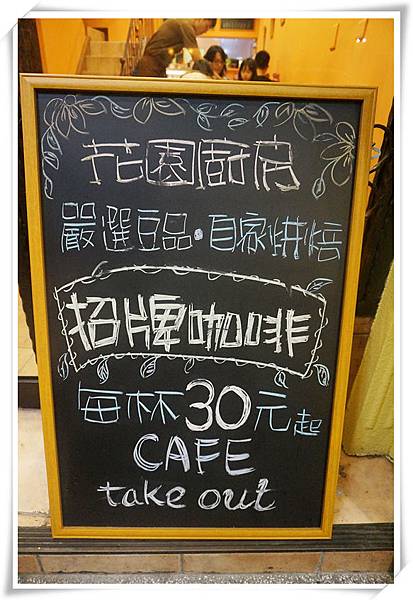 花園廚房
嚴選豆品·自家烘焙
招牌咖啡
每杯30元起
CAFE
take out